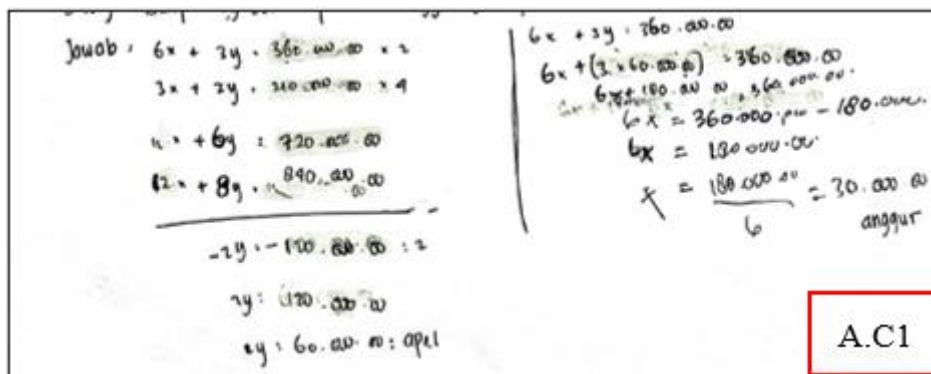 Jawab : 6x + 3y = 360.000.00 x 2
3x + 2y = 210.000.00 x 4
12x + 6y = 720.000.00
12x + 8y = 840.000.00
-2y = - 120.000.00 : 2
2y = 120.000.00
y = 60.000.00 = apel
6x + 3y = 360.000.00
6x + (3 x 60.000.00) = 360.000.00
6x + 180.000.00 = 360.000.00
6x = 360.000.00 - 180.000
6x = 180.000.00
x = 180.000.00 / 6 = 30.000.00
anggur
A.C1